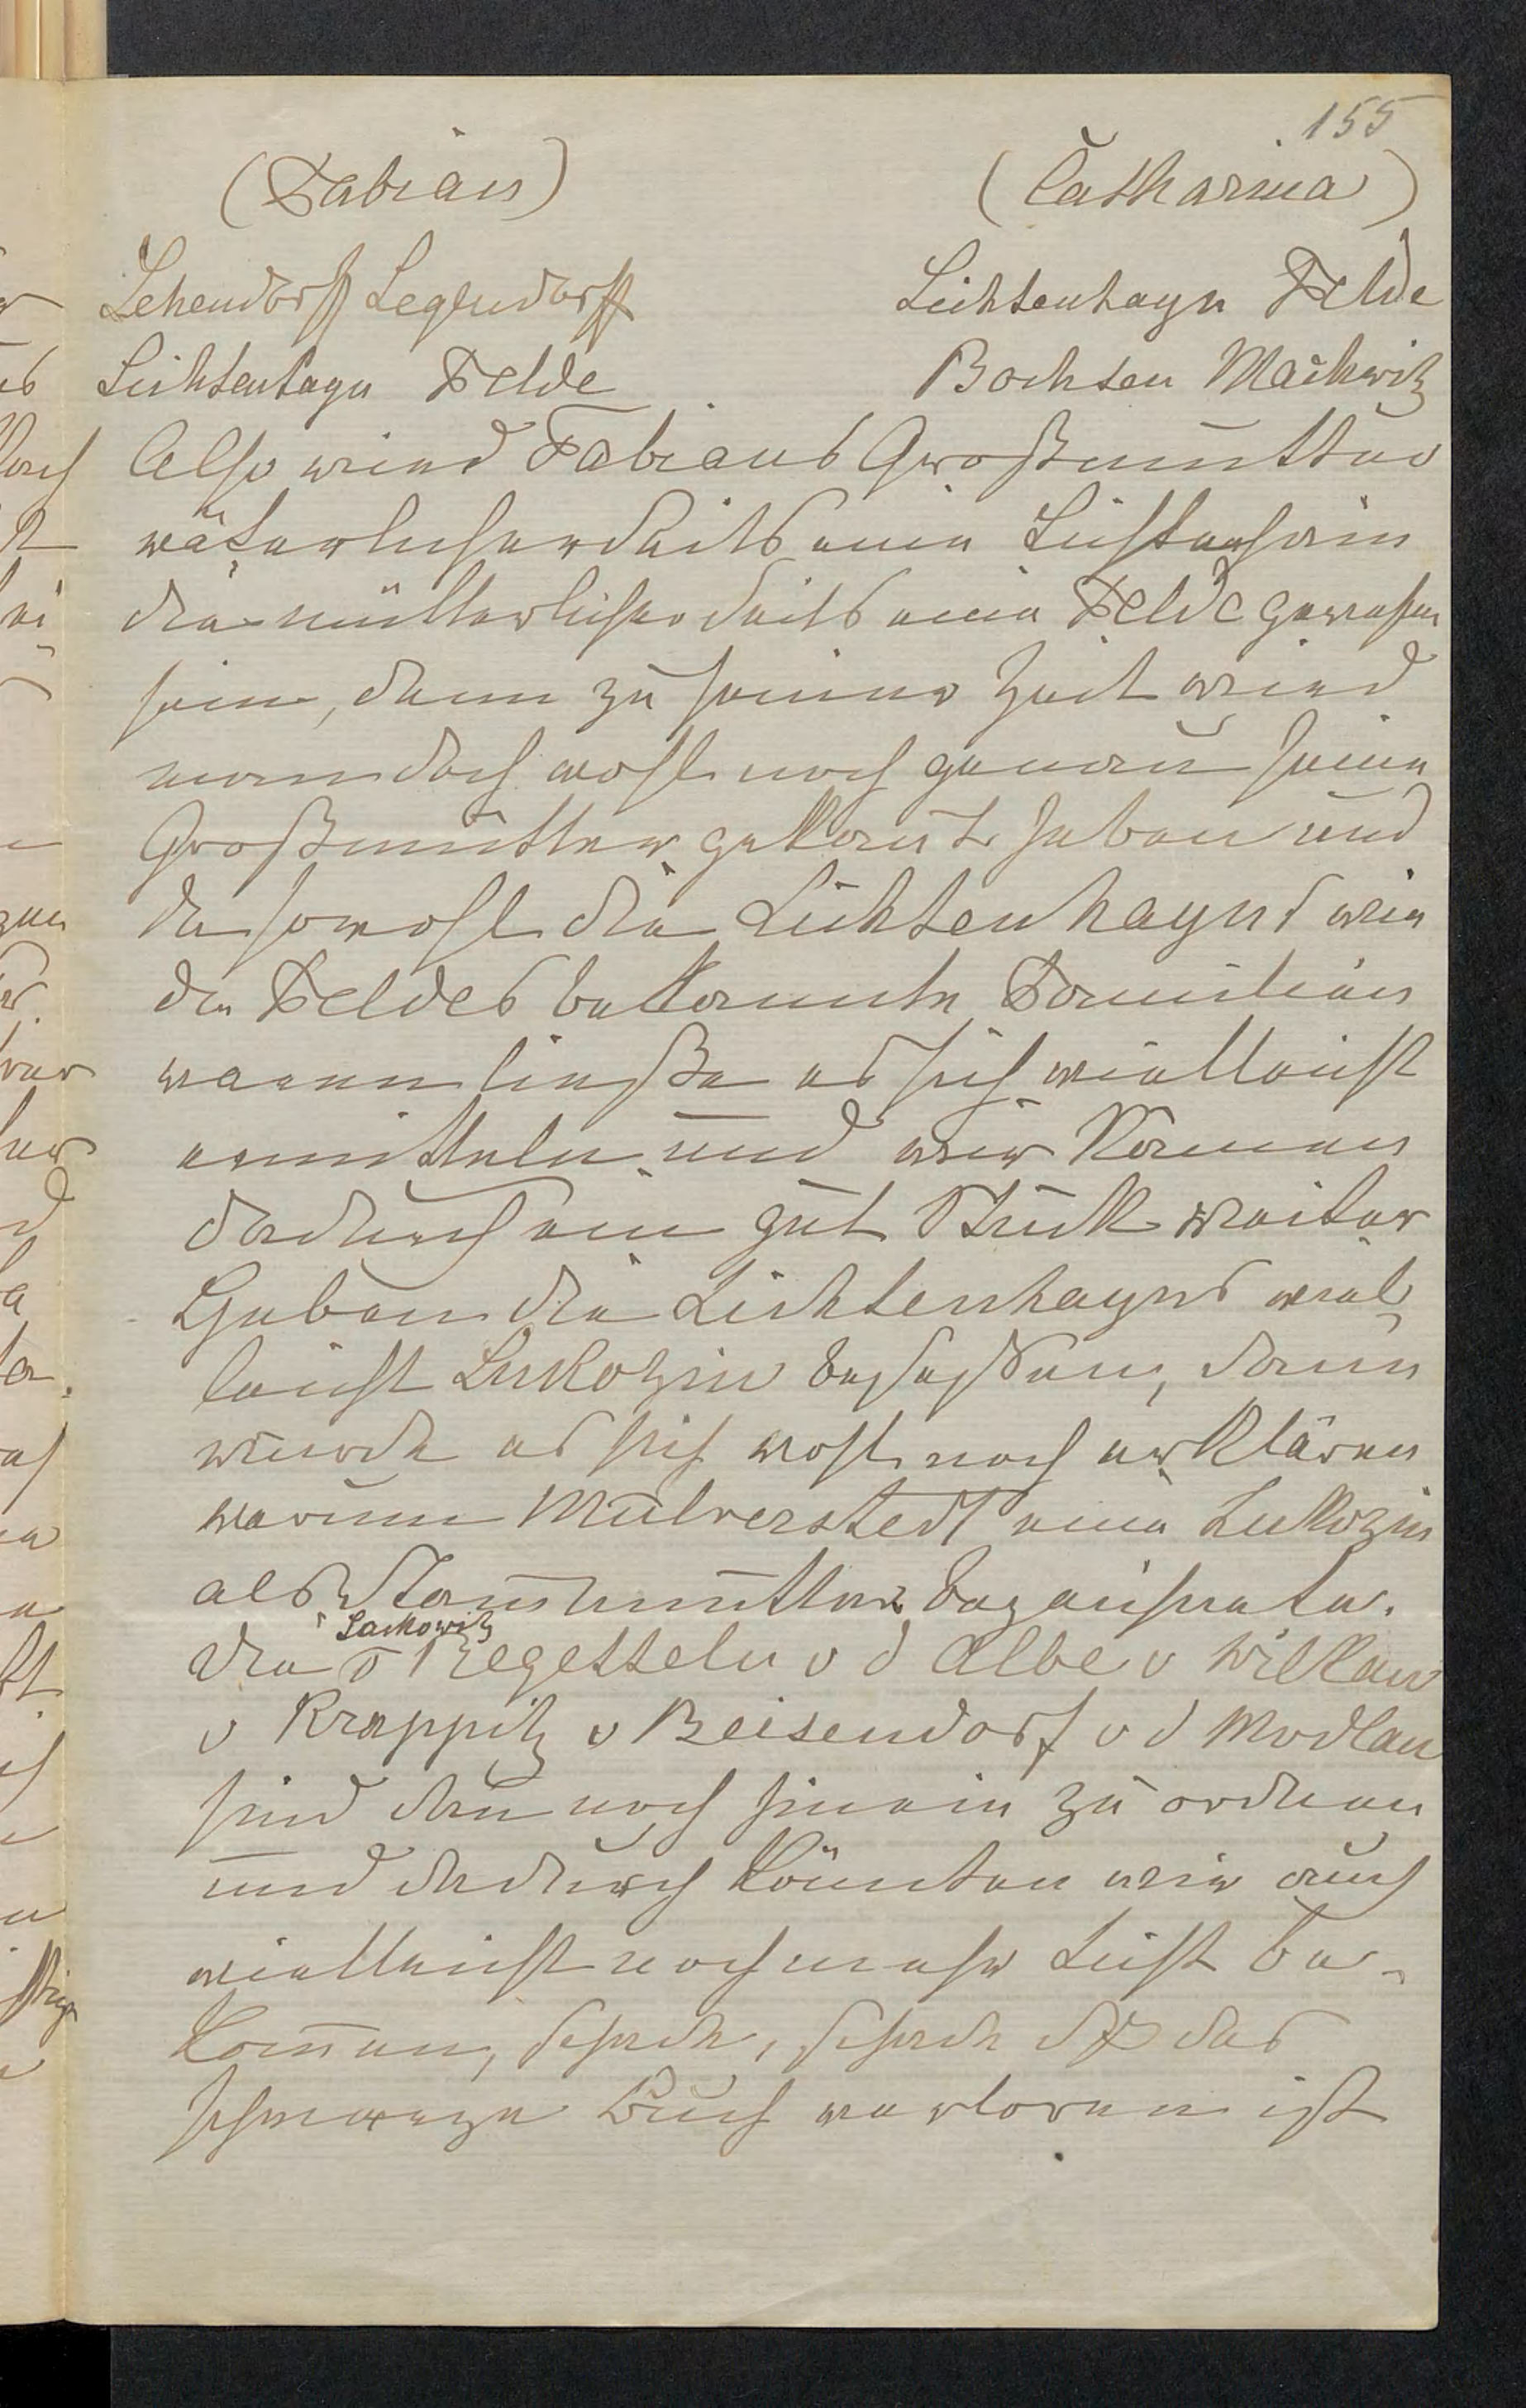 155
(Fabian) (Catharina)
Lehendorff Legendorff Lichtenhayn Felde
Lichtenhayn Felde Bochsen Mackwitz
Also wird Fabians Großmutter
väterlicherseits eine Lichtenhain
die mütterlicherseits eine Felde gewesen
sein, denn zu seiner Zeit wird
man doch wohl noch genau seine
Großmutter gekannt haben und
da sowohl die Lichtenhayns wie
die Feldes bekannte Familien
waren ließe es sich vielleicht
ermitteln und wir kämen
dadurch ein gut Stück weiter
Haben die Lichtenhayns viel
leicht Lukozin besessen, dann
würde es sich wohl noch erklären
warum Mülverstedt eine Lukozin
als Stammutter bezeichnete.
Sackowitz
die v Regetteln v d Albe v Wilkau
v Krappitz v Beisendorf v d Modlau
sind dann noch hinein zu ordnen
und dadurch könnten wir auch
vielleicht noch mehr Licht be-
kommen, schade, schade dß das
schwarze Buch verloren ist